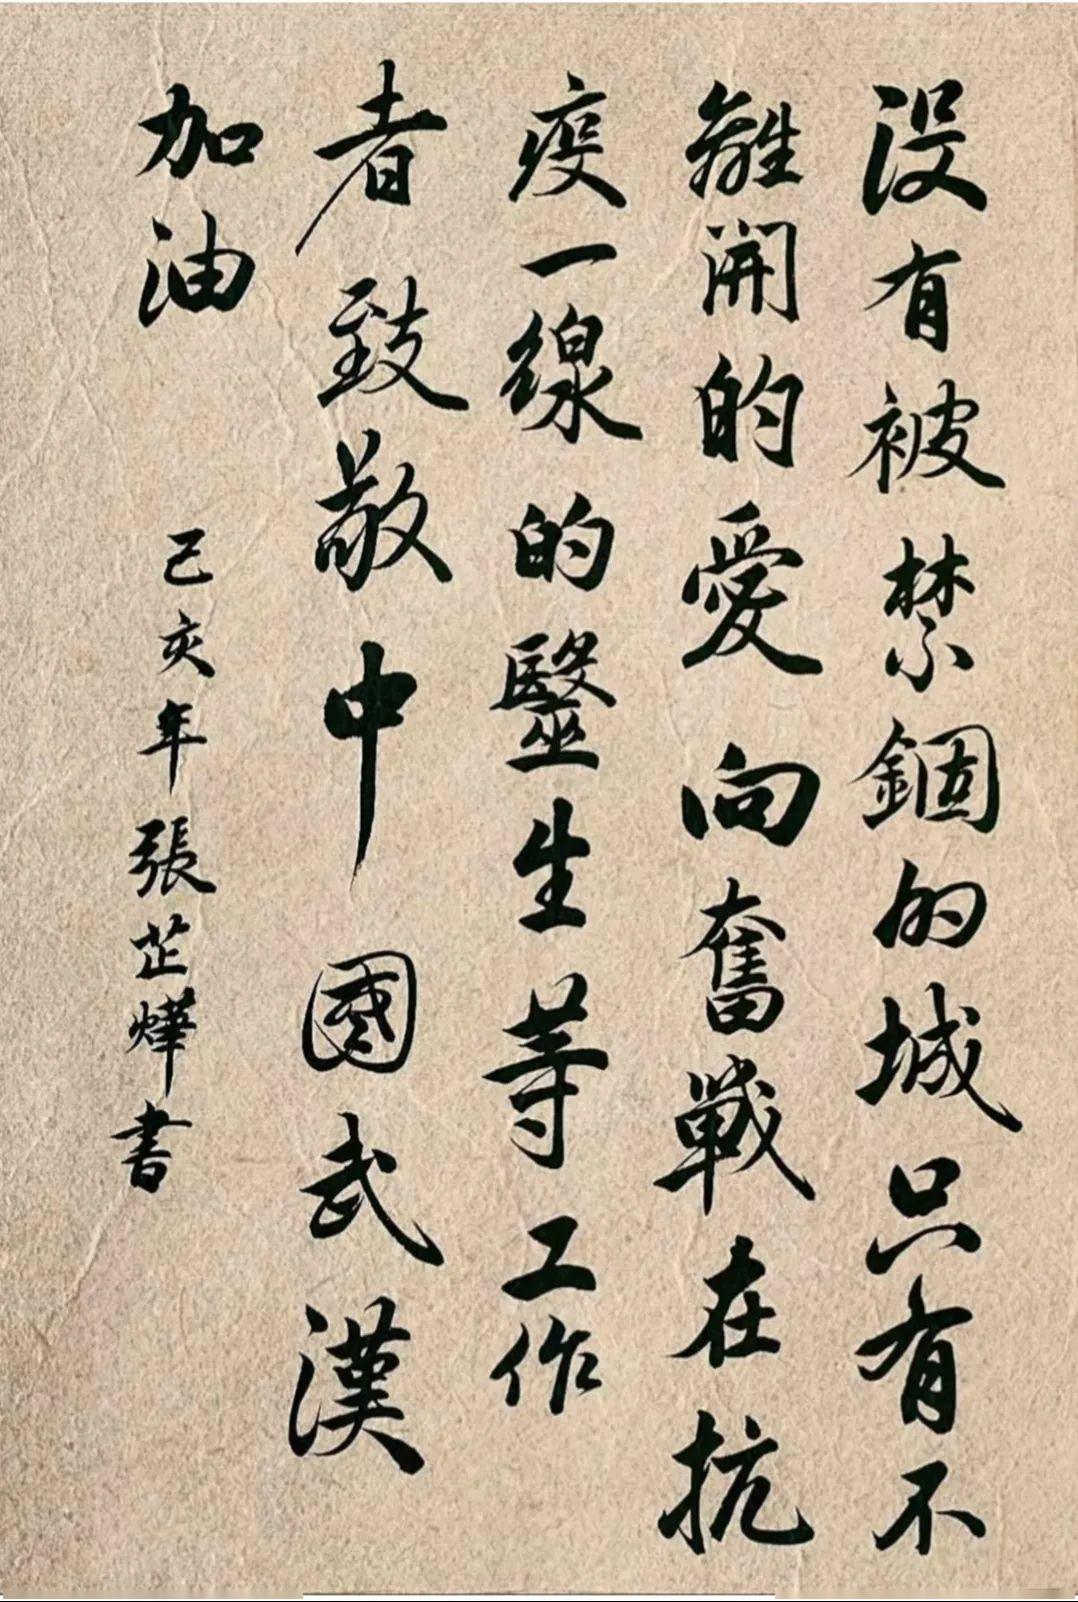 没有被禁錮的城只有不
離開的愛向奮戰在抗
疫一線的醫生等工作
者致敬中國武漢
加油
己亥年張芷燁書